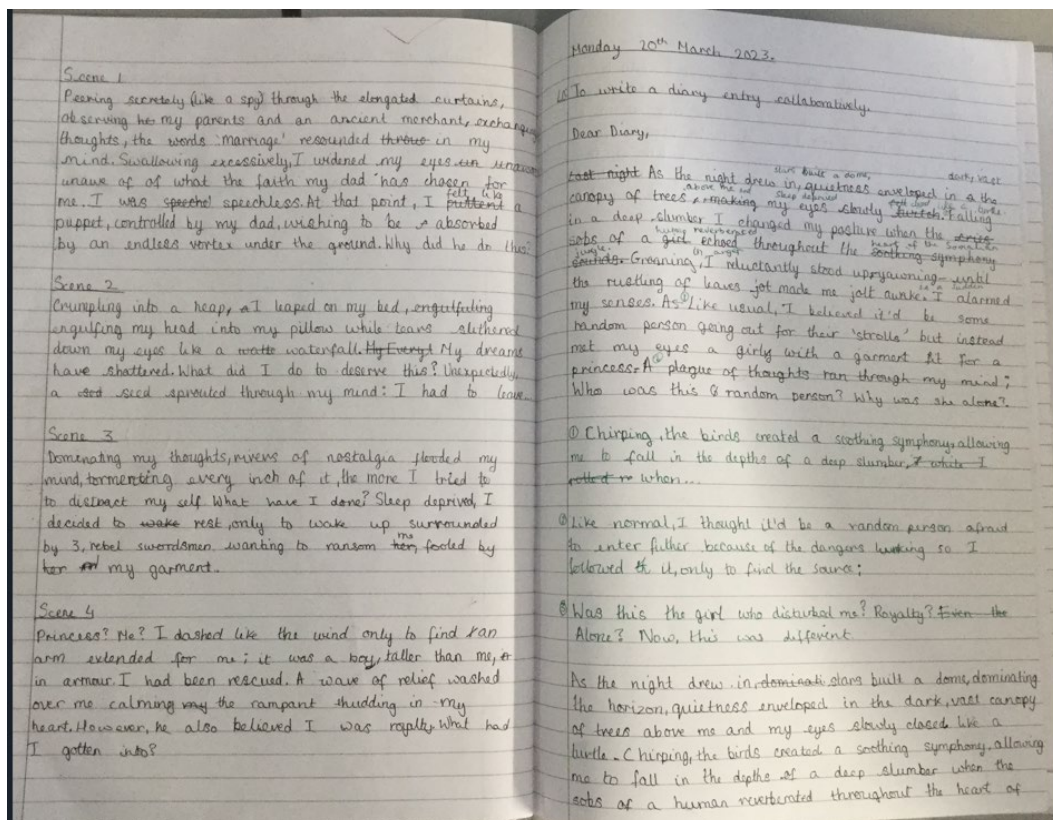 Scene 1
Peering secretely (like a spy) through the elongated curtains,
observing my parents and an ancient merchant, exchanging
thoughts, the words 'marriage' resounded in my
mind. Swallowing excessively, I widened my eyes
unawe of of what the faith my dad has chosen for
me. I was speechless. At that point, I felt like a
puppet, controlled by my dad, wishing to be absorbed
by an endless vortex under the ground. Why did he do this?
Scene 2
Crumpling into a heap, I leaped on my bed, engutfuling
engulfing my head into my pillow while tears slithered
down my eyes like a waterfall. My dreams
have shattered. What did I do to deserve this? Unexpectedly,
a seed sprouted through my mind: I had to leave.
Scene 3
Dominating my thoughts, rivers of nostalgia flooded my
mind, tormenting every inch of it, the more I tried to
to distract my self. What have I done? Sleep deprived, I
decided to rest, only to wake up surrounded
by 3, rebel swordsmen wanting to ransom me, fooled by
my garment.
Scene 4
Princess? Me? I dashed like the wind only to find an
arm extended for me; it was a boy, taller than me,
in armour. I had been rescued. A wave of relief washed
over me calming the rampant thudding in my
heart. However, he also believed I was royalty. What had
I gotten into?
Monday 20th March 2023.
To write a diary entry collaboratively.
Dear Diary,
stars built a dome, dark, vast
Last night As the night drew in, quietness enveloped in the
above me and sleep deprived
canopy of trees making my eyes slowly falling
in a deep slumber I changed my posture when the
human reverberated heart of the
sobs of a girl echoed throughout the soothing symphony
jungle. in anger
sounds. Groaning, I reluctantly stood up yawning until
the rustling of leaves jot made me jolt awake. I alarmed
my senses. As Like usual, I believed it'd be some
random person going out for their 'strolls' but instead
met my eyes a girly with a garment fit for a
princess. A plague of thoughts ran through my mind;
Who was this random person? Why was she alone?
① Chirping, the birds created a soothing symphony, allowing
me to fall in the depths of a deep slumber, while I
rolled when...
② Like normal, I thought it'd be a random person afraid
to enter futher because of the dangers lurking so I
followed it, only to find the source;
③ Was this the girl who disturbed me? Royalty? Even the
Alone? Now, this was different
As the night drew in, stars built a dome, dominating
the horizon, quietness enveloped in the dark, vast canopy
of trees above me and my eyes slowly closed like a
turtle. Chirping, the birds created a soothing symphony, allowing
me to fall in the depths of a deep slumber when the
sobs of a human reverberated throughout the heart of